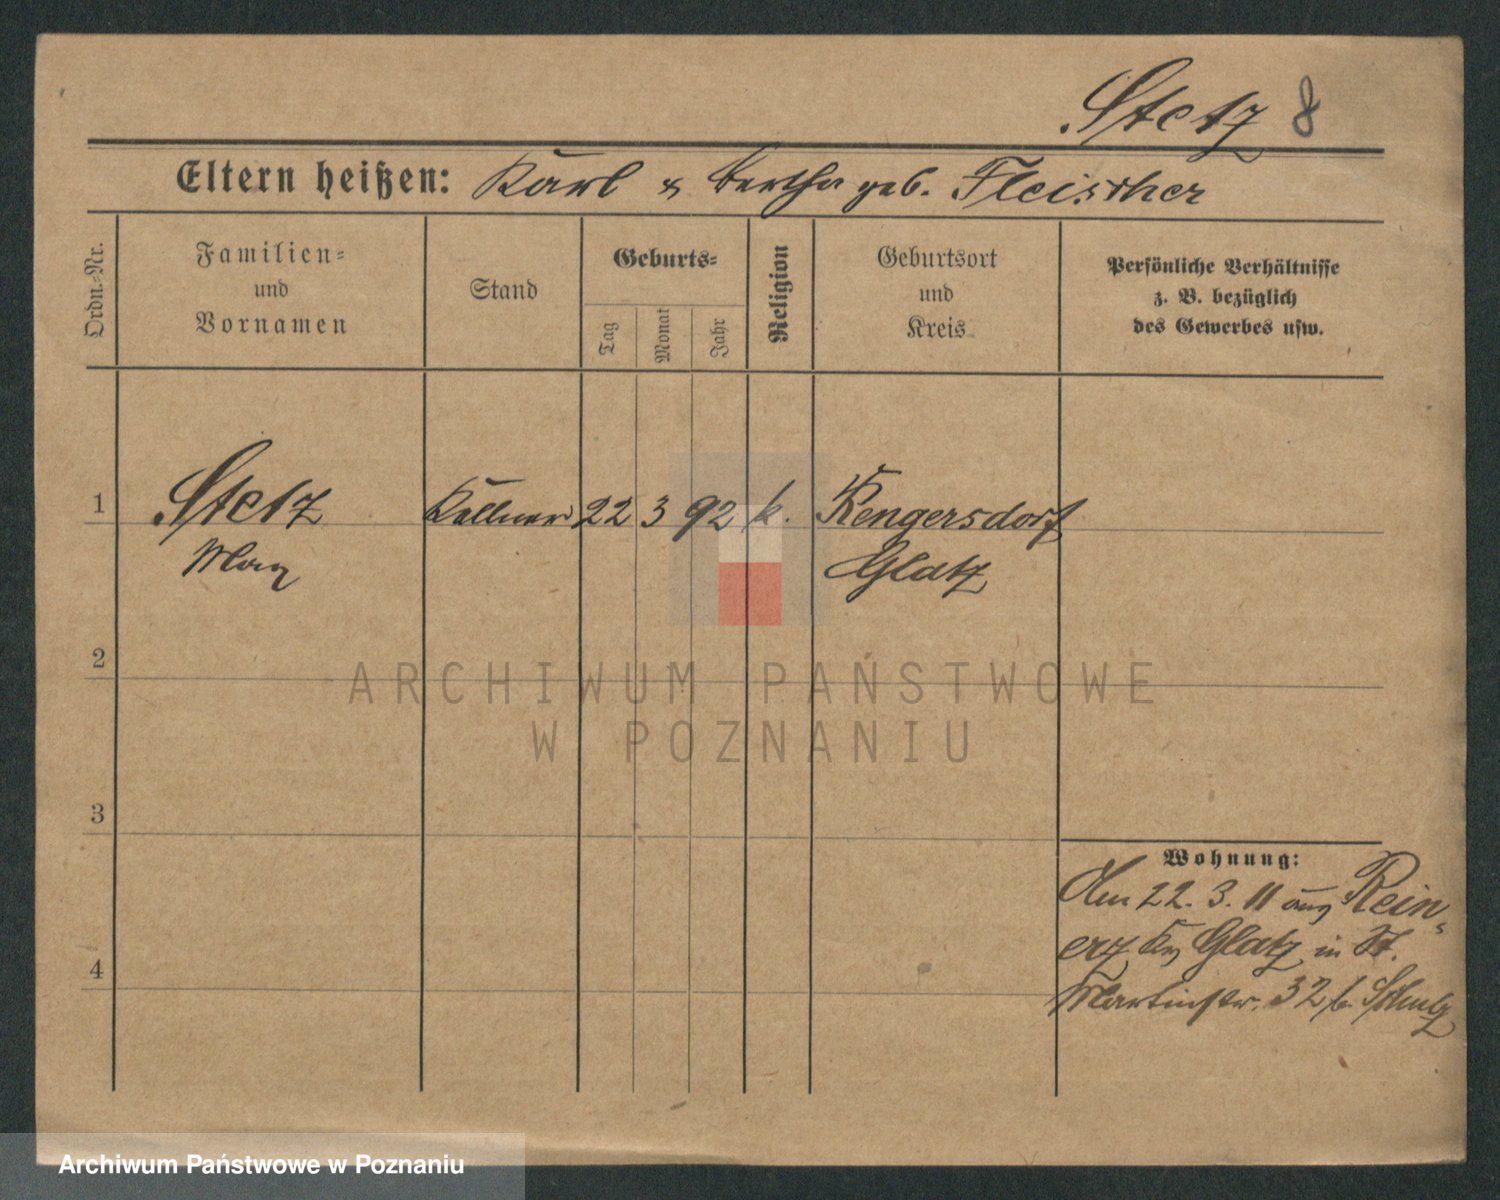 Stetz 8
Eltern heißen: Karl & Bertha geb. Fleischer
Ordn.-Nr.
Familien-
und
Vornamen
Stand
Geburts-
Tag
Monat
Jahr
Religion
Geburtsort
und
Kreis
Persönliche Verhältnisse
z. B. bezüglich
des Gewerbes usw.
1 Stetz Kellner 22 3 92 k. Rengersdorf
Max Glatz
2
ARCHIWUM PAŃSTWOWE
W POZNANIU
3
Wohnung:
Am 22. 3. 11 aus Rein-
erz Krs Glatz in St.
4
Martinstr. 32 b. Schulz
Archiwum Państwowe w Poznaniu